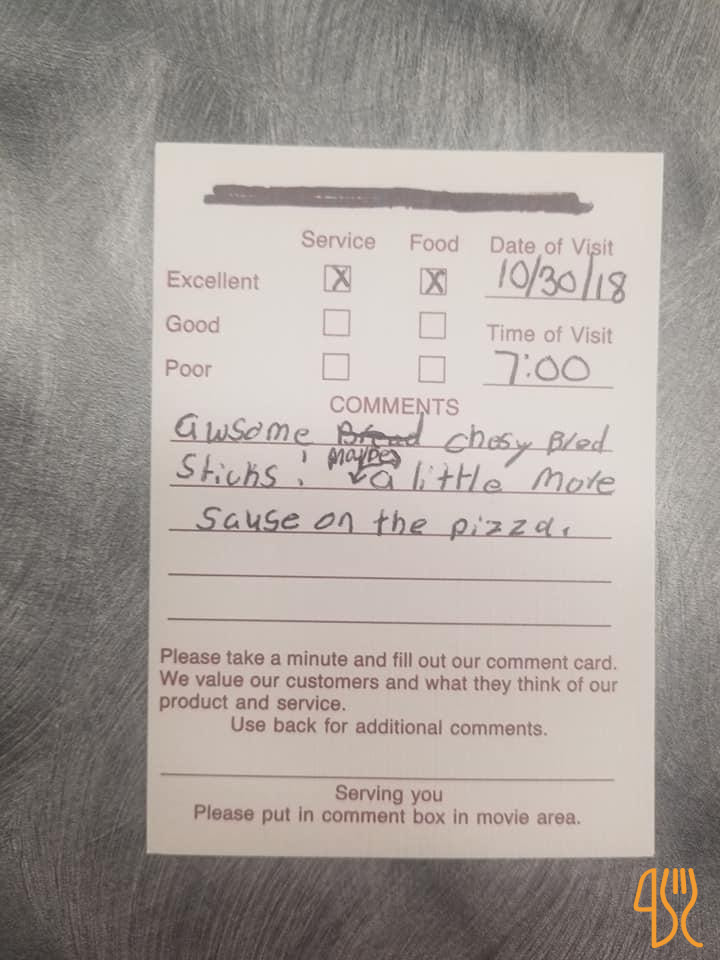 Service Food Date of Visit
Excellent X X 10/30/18
Good Time of Visit
Poor 7:00
COMMENTS
awsome Bread chesy Bred
Sticks! maybe a little more
sause on the pizza.
Please take a minute and fill out our comment card.
We value our customers and what they think of our
product and service.
Use back for additional comments.
Serving you
Please put in comment box in movie area.